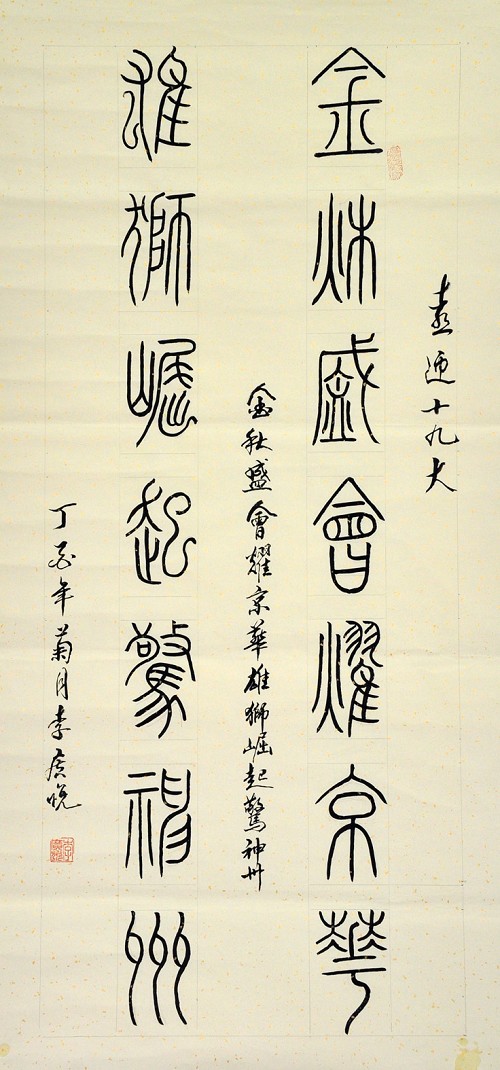 喜迎十九大
金秋盛會燿京華
金秋盛會耀京華雄獅崛起驚神州
雄獅崛起驚神州
丁酉年菊月李